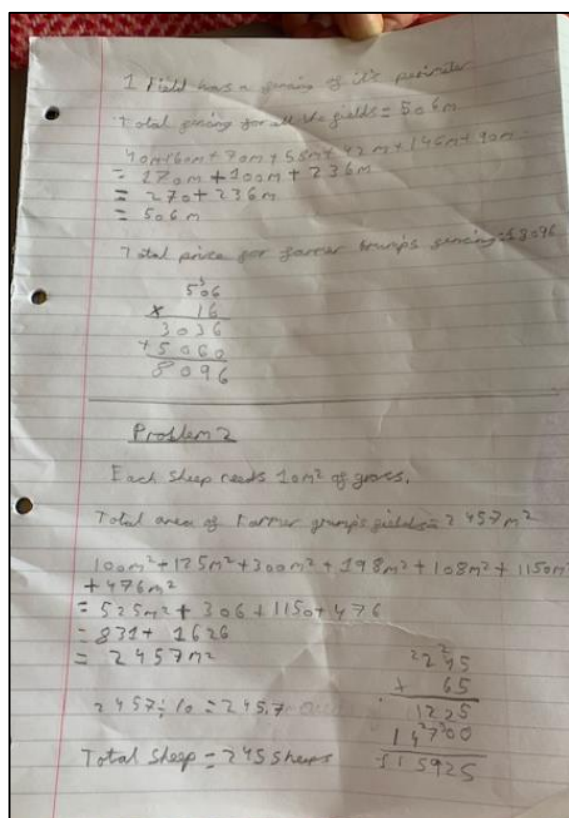 1 Field has a fencing of it's perimiter
Total fencing for all the fields = 506m
40m+60m+70m+58m+42m+146m+90m
= 170m+100m+236m
= 270+236m
= 506m
Total price for farmer Grumps fencing=£8096
506
× 16
3036
+5060
8096
Problem 2
Each sheep needs 10m² of grass.
Total area of Farmer grumps fields=2457m²
100m²+125m²+300m²+198m²+108m²+1150m²
+476m²
= 525m²+306+1150+476
= 831+1626
= 2457m²
2457÷10=245.7
Total sheep = 245 sheeps
245
× 65
1225
14700
£15925